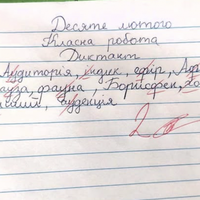 Десяте лютого
Класна робота
Диктант
Аудитория, індик, ефір,
фауна, Борисфен,
аудієнція
2